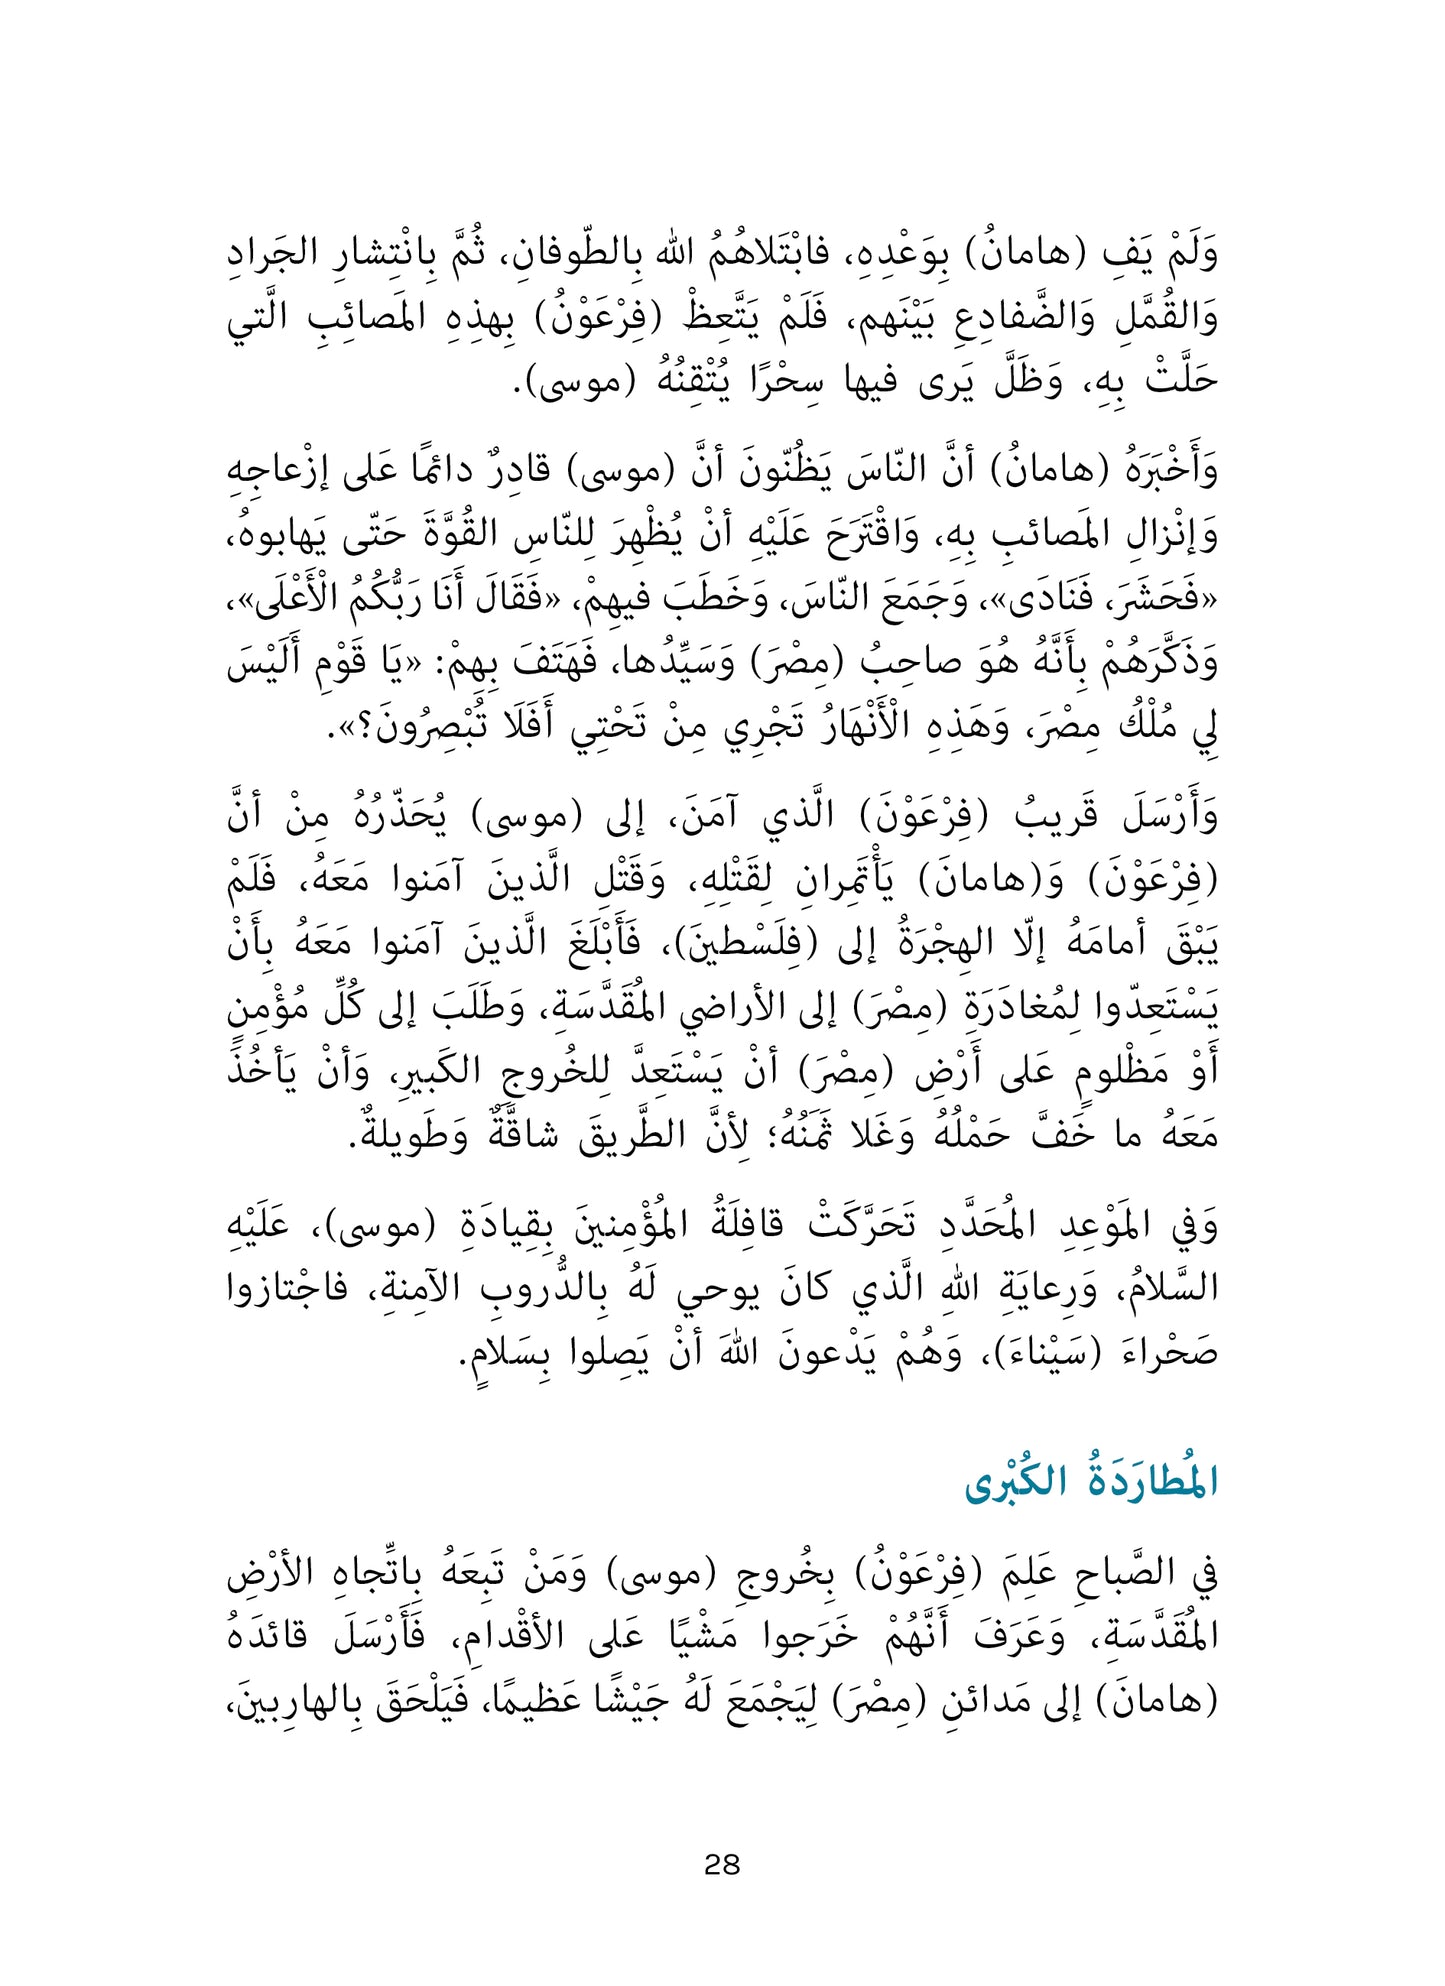 وَلَمْ يَفِ (هامانُ) بِوَعْدِهِ، فابْتَلاهُمُ الله بِالطّوفانِ، ثُمَّ بِانْتِشارِ الجَرادِ
وَالقُمَّلِ وَالضَّفادِعِ بَيْنَهم، فَلَمْ يَتَّعِظْ (فِرْعَوْنُ) بِهذِهِ المَصائِبِ الَّتي
حَلَّتْ بِهِ، وَظَلَّ يَرى فيها سِحْرًا يُتْقِنُهُ (موسى).
وَأَخْبَرَهُ (هامانُ) أنَّ النّاسَ يَظُنّونَ أنَّ (موسى) قادِرٌ دائمًا عَلى إزْعاجِهِ
وَإنْزالِ المَصائبِ بِهِ، وَاقْتَرَحَ عَلَيْهِ أنْ يُظْهِرَ لِلنّاسِ القُوَّةَ حَتّى يَهابوهُ،
«فَحَشَرَ، فَنَادَى»، وَجَمَعَ النّاسَ، وَخَطَبَ فيهِمْ، «فَقَالَ أَنَا رَبُّكُمُ الْأَعْلَى»،
وَذَكَّرَهُمْ بِأَنَّهُ هُوَ صاحِبُ (مِصْرَ) وَسَيِّدُها، فَهَتَفَ بِهِمْ: «يَا قَوْمِ أَلَيْسَ
لِي مُلْكُ مِصْرَ، وَهَذِهِ الْأَنْهَارُ تَجْرِي مِنْ تَحْتِي أَفَلَا تُبْصِرُونَ؟».
وَأَرْسَلَ قَريبُ (فِرْعَوْنَ) الَّذي آمَنَ، إلى (موسى) يُحَذّرُهُ مِنْ أنَّ
(فِرْعَوْنَ) وَ(هامانَ) يَأْتَمِرانِ لِقَتْلِهِ، وَقَتْلِ الَّذينَ آمَنوا مَعَهُ، فَلَمْ
يَبْقَ أمامَهُ إلّا الهِجْرَةُ إلى (فِلَسْطينَ)، فَأَبْلَغَ الَّذينَ آمَنوا مَعَهُ بِأَنْ
يَسْتَعِدّوا لِمُغادَرَةِ (مِصْرَ) إلى الأراضي المُقَدَّسَةِ، وَطَلَبَ إلى كُلِّ مُؤْمِنٍ
أَوْ مَظْلومٍ عَلى أَرْضِ (مِصْرَ) أنْ يَسْتَعِدَّ لِلخُروجِ الكَبيرِ، وَأنْ يَأخُذَ
مَعَهُ ما خَفَّ حَمْلُهُ وَغَلا ثَمَنُهُ؛ لِأنَّ الطَّريقَ شاقَّةٌ وَطَويلةٌ.
وَفي المَوْعِدِ المُحَدَّدِ تَحَرَّكَتْ قافِلَةُ المُؤْمِنينَ بِقِيادَةِ (موسى)، عَلَيْهِ
السَّلامُ، وَرِعايَةِ اللهِ الَّذي كانَ يوحي لَهُ بِالدُّروبِ الآمِنةِ، فاجْتازوا
صَحْراءَ (سَيْناءَ)، وَهُمْ يَدْعونَ اللهَ أنْ يَصِلوا بِسَلامٍ.
المُطارَدَةُ الكُبْرى
في الصَّباحِ عَلِمَ (فِرْعَوْنُ) بِخُروجِ (موسى) وَمَنْ تَبِعَهُ بِاتِّجاهِ الأرْضِ
المُقَدَّسَةِ، وَعَرَفَ أَنَّهُمْ خَرَجوا مَشْيًا عَلى الأقْدامِ، فَأَرْسَلَ قائدَهُ
(هامانَ) إلى مَدائنِ (مِصْرَ) لِيَجْمَعَ لَهُ جَيْشًا عَظيمًا، فَيَلْحَقَ بِالهارِبينَ،
28